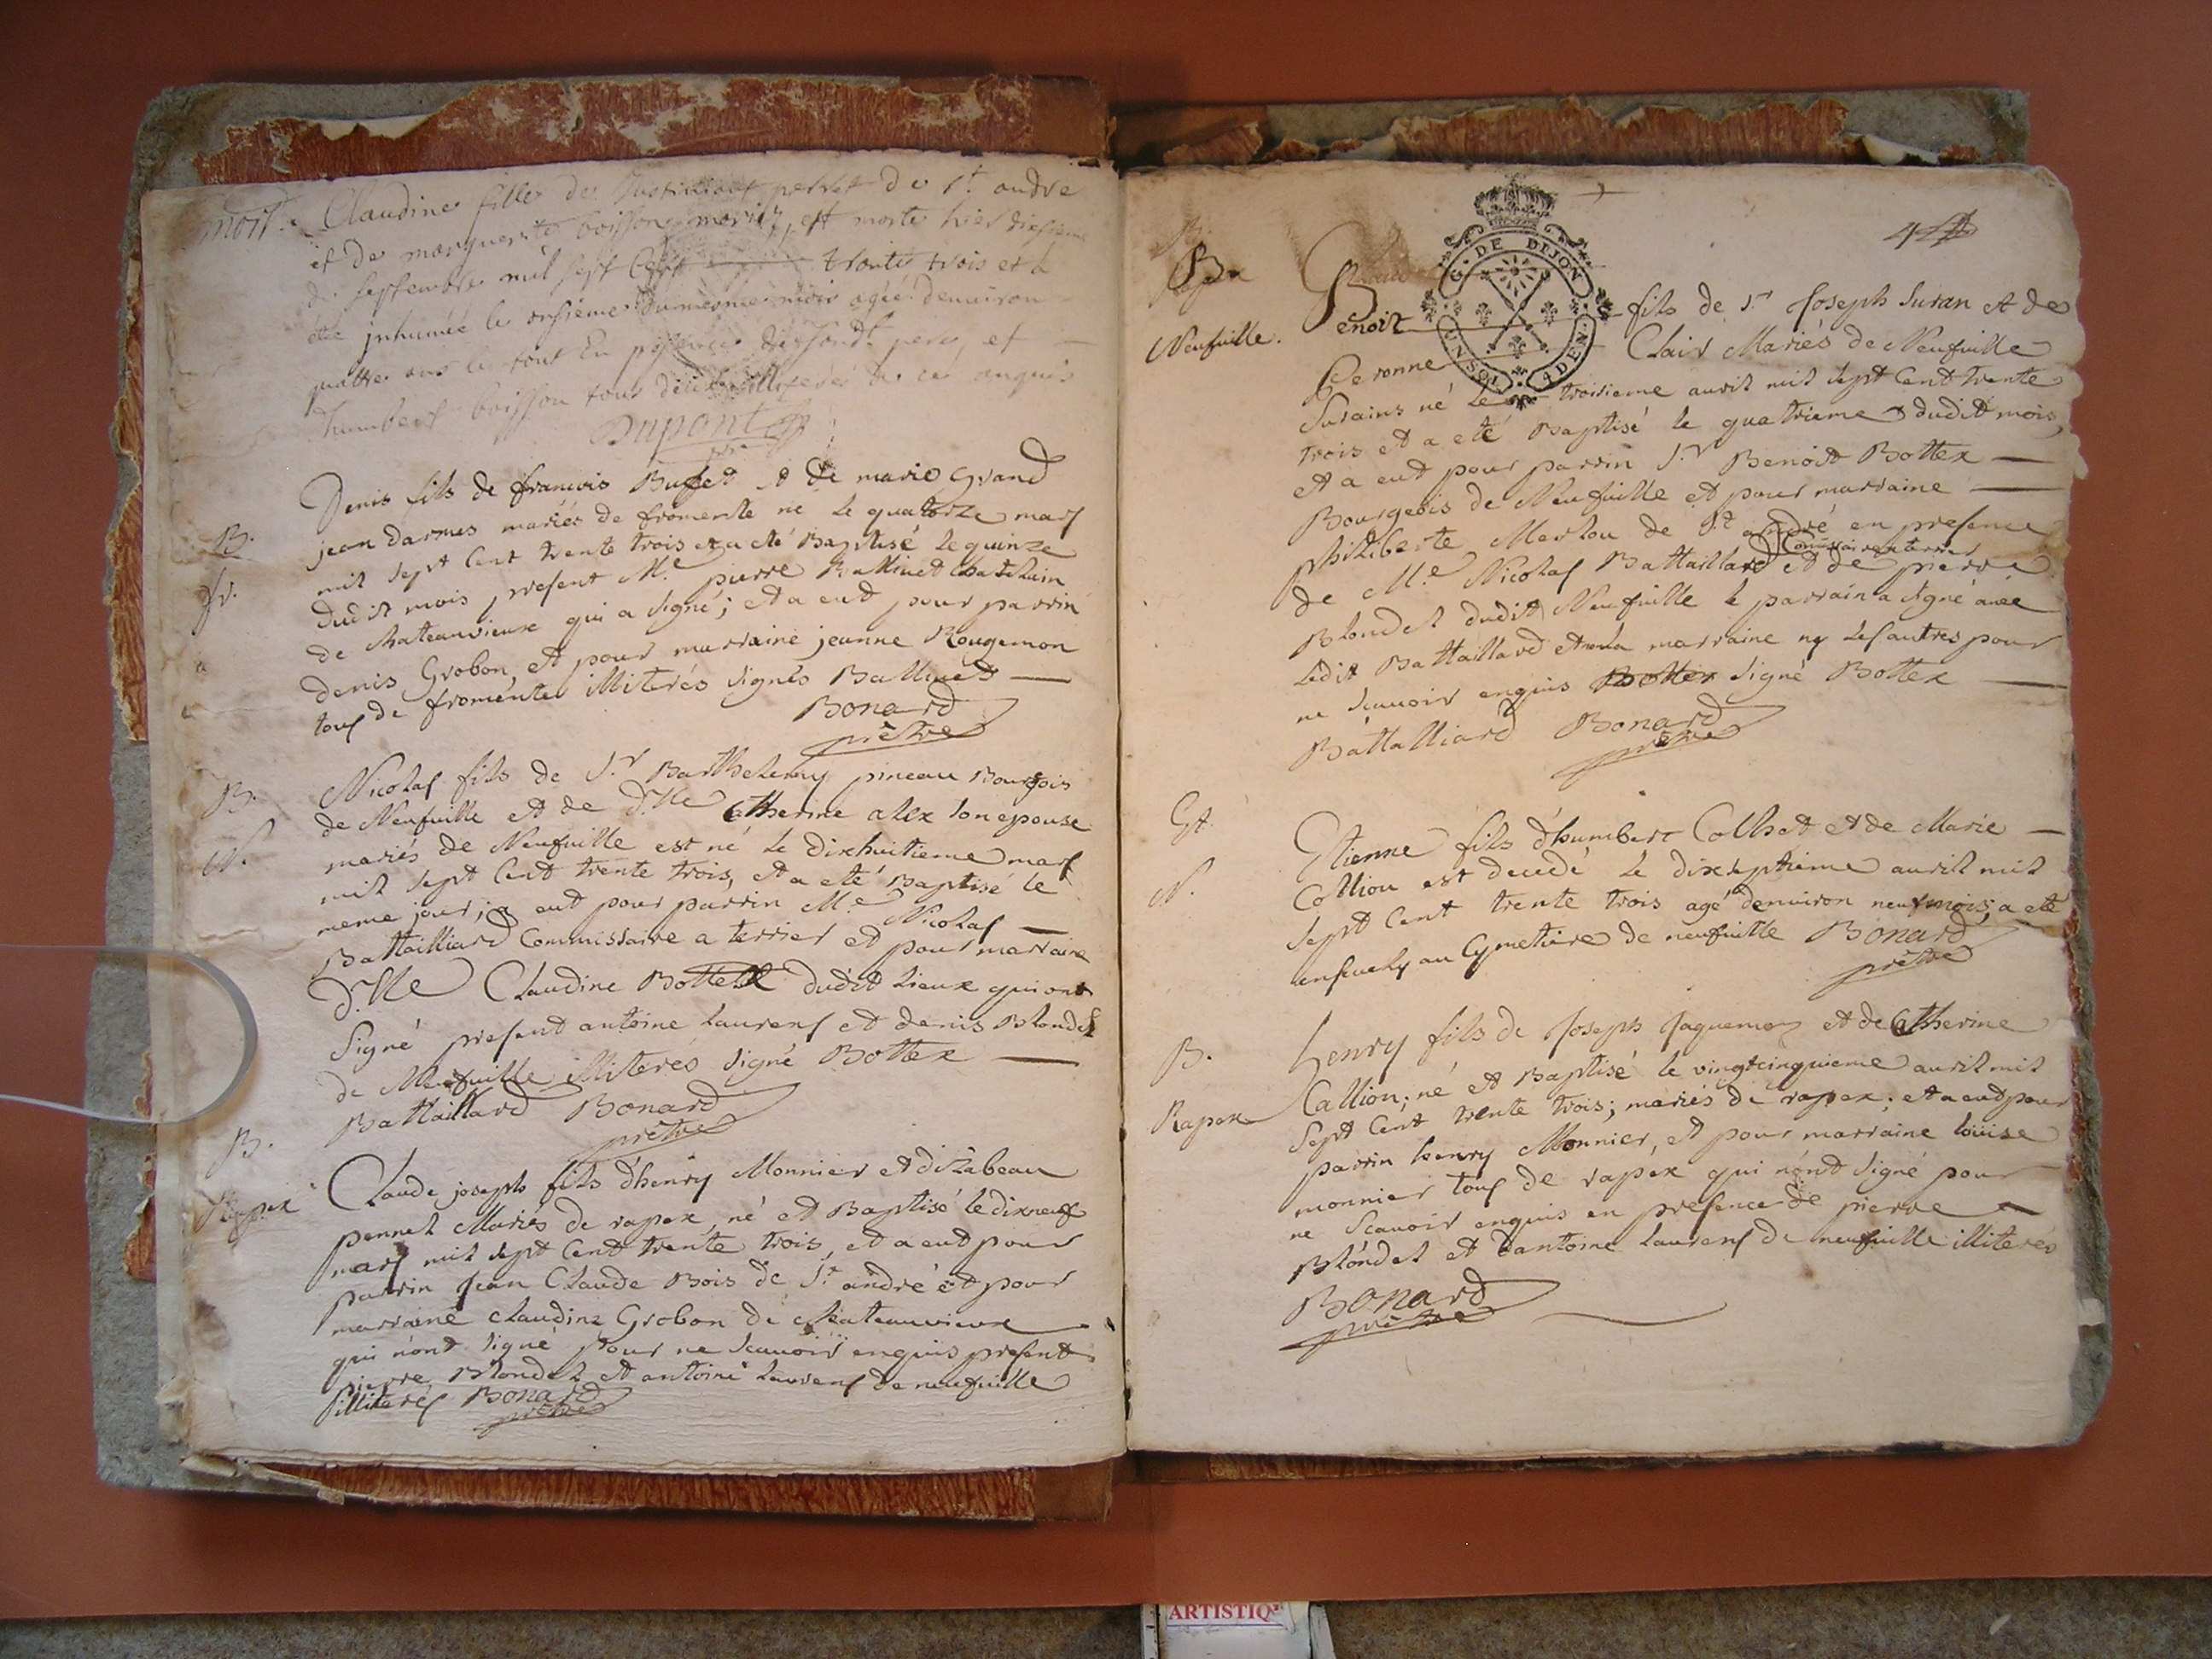 mort. Claudine fille de perret de St. andré
et de marguerite boisson mariéz, est morte hier dixsieme
de septembre mil sept Cent trente trois et a
été jnhumée le onsieme du mesme mois agée denuiron
quattre ans le tout En présence dudt. père, et
humbert boisson tous deux illiterés de ce anquis
Dupont
B. Denis fils de francois Buffet et de marie Grand
fr. jean darmes mariés de fromente né le quatorze mars
mil sept Cent trente trois et a eté Baptisé le quinze
dudit mois present M.e pierre Ballivet Chatelain
de Chateauvieux qui a signé; et a eut pour parrin
denis Grobon, et pour marraine jeanne Rougemon
tous de fromente illiterés signés Ballivet
Bonard
prêtre
B. Nicolas fils de S.r Barthelemy pineau Bourgois
de Neufuille et de D.lle Catherine alex son epouse
N. mariés de Neufuille est né le dixhuitieme mars
mil sept Cent trente trois, et a eté Baptisé le
meme jour; a eut pour parrin M.e Nicolas
Battailliard Commissaire a terrier et pour marraine
D.lle Claudine Bottex dudit Lieux qui ont
Signé present antoine Laurens et denis Blondel
de Neufuille illiterés signé Bottex
Battaillard Bonard
prêtre
B. Claude joseph fils d'henry Monnier et d'izabeau
Rapex pennet Mariés de rapex, né et Baptisé le dixneuf
mars mil sept Cent trente trois, et a eut pour
parrin Jean Claude Bois de St. andré et pour
marraine claudine Grobon de Chateauvieux
qui n'ont signé pour ne scauoir enquis present
pierre Blondel et antoine Laurens de neufuille
illiterés Bonard
prêtre
G. DE DIJON
UN SOL 4 DEN.
4
B
Neufuille. Benoit fils de S.r Joseph Suran et de
Peronne Clair Mariés de Neufuille
Surains né Le troisieme auril mil sept Cent trente
trois et a eté Baptisé le quatrieme dudit mois,
et a eut pour parrin S.r Benoit Bottex
Bourgeois de Neufuille et pour marraine
philiberte Merlou de St andré en presence
Commissaire a terrier
de M.e Nicolas Battaillard et de pierre
Blondel dudit Neufuille le parrain a signé avec
Ledit Battaillard et non la marraine ny Les autres pour
ne scauoir enquis Bottex signé Bottex
Battalliard Bonard
prêtre
Et. Etienne fils d'humbert Collet et de Marie
N. Collion est decedé le dixseptieme auril mil
sept Cent trente trois agé denuiron neuf mois; a eté
enseuely au Cymetiere de neufuille Bonard
prêtre
B. henry fils de Joseph Jaquemoz et de Catherine
Rapex Callion; né et Baptisé le vingtcinquieme auril mil
Sept Cent trente trois; mariés de rapex; et a eut pour
parrin henry Monnier, et pour marraine louise
monnier tous de rapéx qui n'ont signé pour
ne Scauoir enquis en presence de pierre
Blondel et d'antoine Laurens de neufuille illiterés
Bonard
prêtre
ARTISTIQ